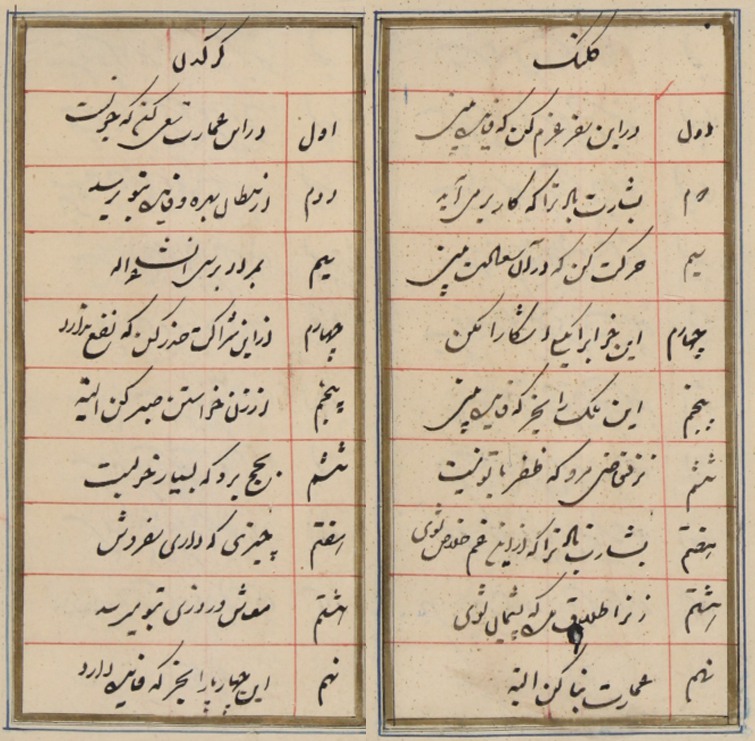 کلنگ
اول در این سفر عزم کن که فایده بینی
دوم بشارت باد ترا که کار بر می آید
سیم حرکت کن که در آن سعادت بینی
چهارم این خبر را بکسی آشکارا مکن
پنجم این ملک را بخر که فایده بینی
ششم نزد قاضی مرو که ظفر با تو نیست
هفتم بشارت باد ترا که از این غم خلاص شوی
هشتم زنرا طلاق مده که پشیمان شوی
نهم عمارت بنا کن البته
کرکدن
اول در این عمارت سعی کن که خوبست
دوم از سلطان بهره و فایده بتو برسد
سیم بمراد برسی انشاء الله
چهارم از این شراکت حذر کن که نفع ندارد
پنجم از زن خواستن صبر کن البته
ششم بحج برو که بسیار خوبست
هفتم چیزی که داری بفروش
هشتم معاش و روزی بتو میرسد
نهم این چهارپا را بخر که فایده دارد